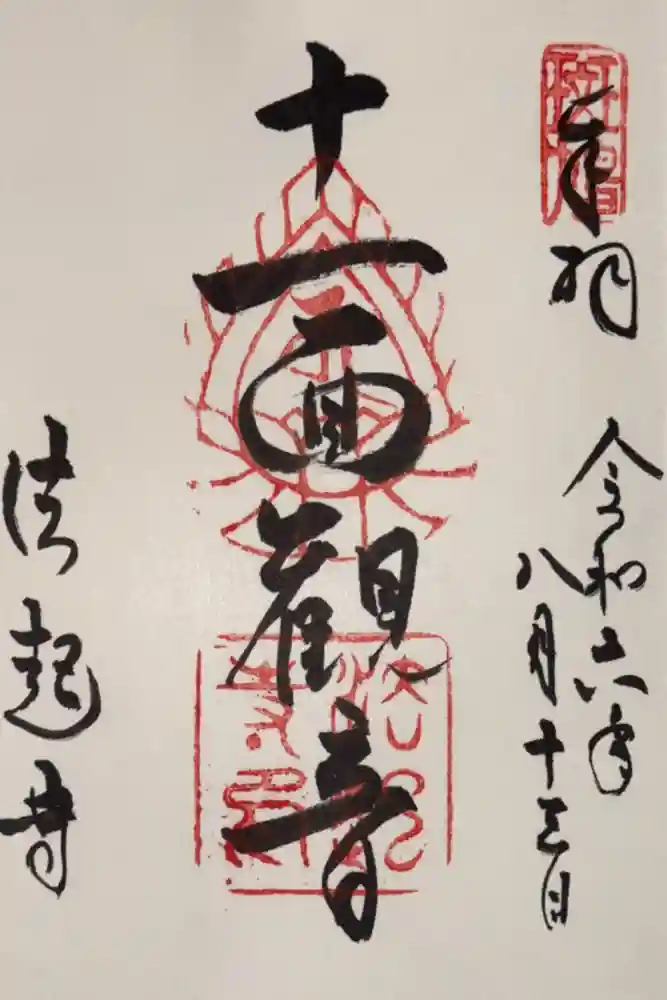 奉拝
令和六年
八月十三日
十一面観音
法起寺
斑鳩